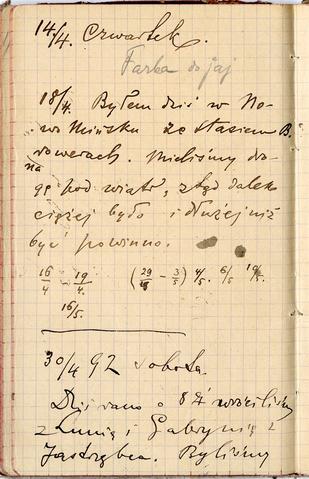 14/4. Czwartek.
Farba do jaj
18/4. Byłem dziś w No-
wo Mińsku ze Stasiem B.
na rowerach. Mieliśmy dro-
gę pod wiatr, stąd daleko
ciężej było i dłużej niż
być powinno.
16/4 19/4. (29/4 – 3/5) 4/5. 6/5 19/5.
16/5.
30/4 92 sobota.
Dziś rano o 8¼
z Lunią i Gabrynią z
Jastrzębca. Byliśmy